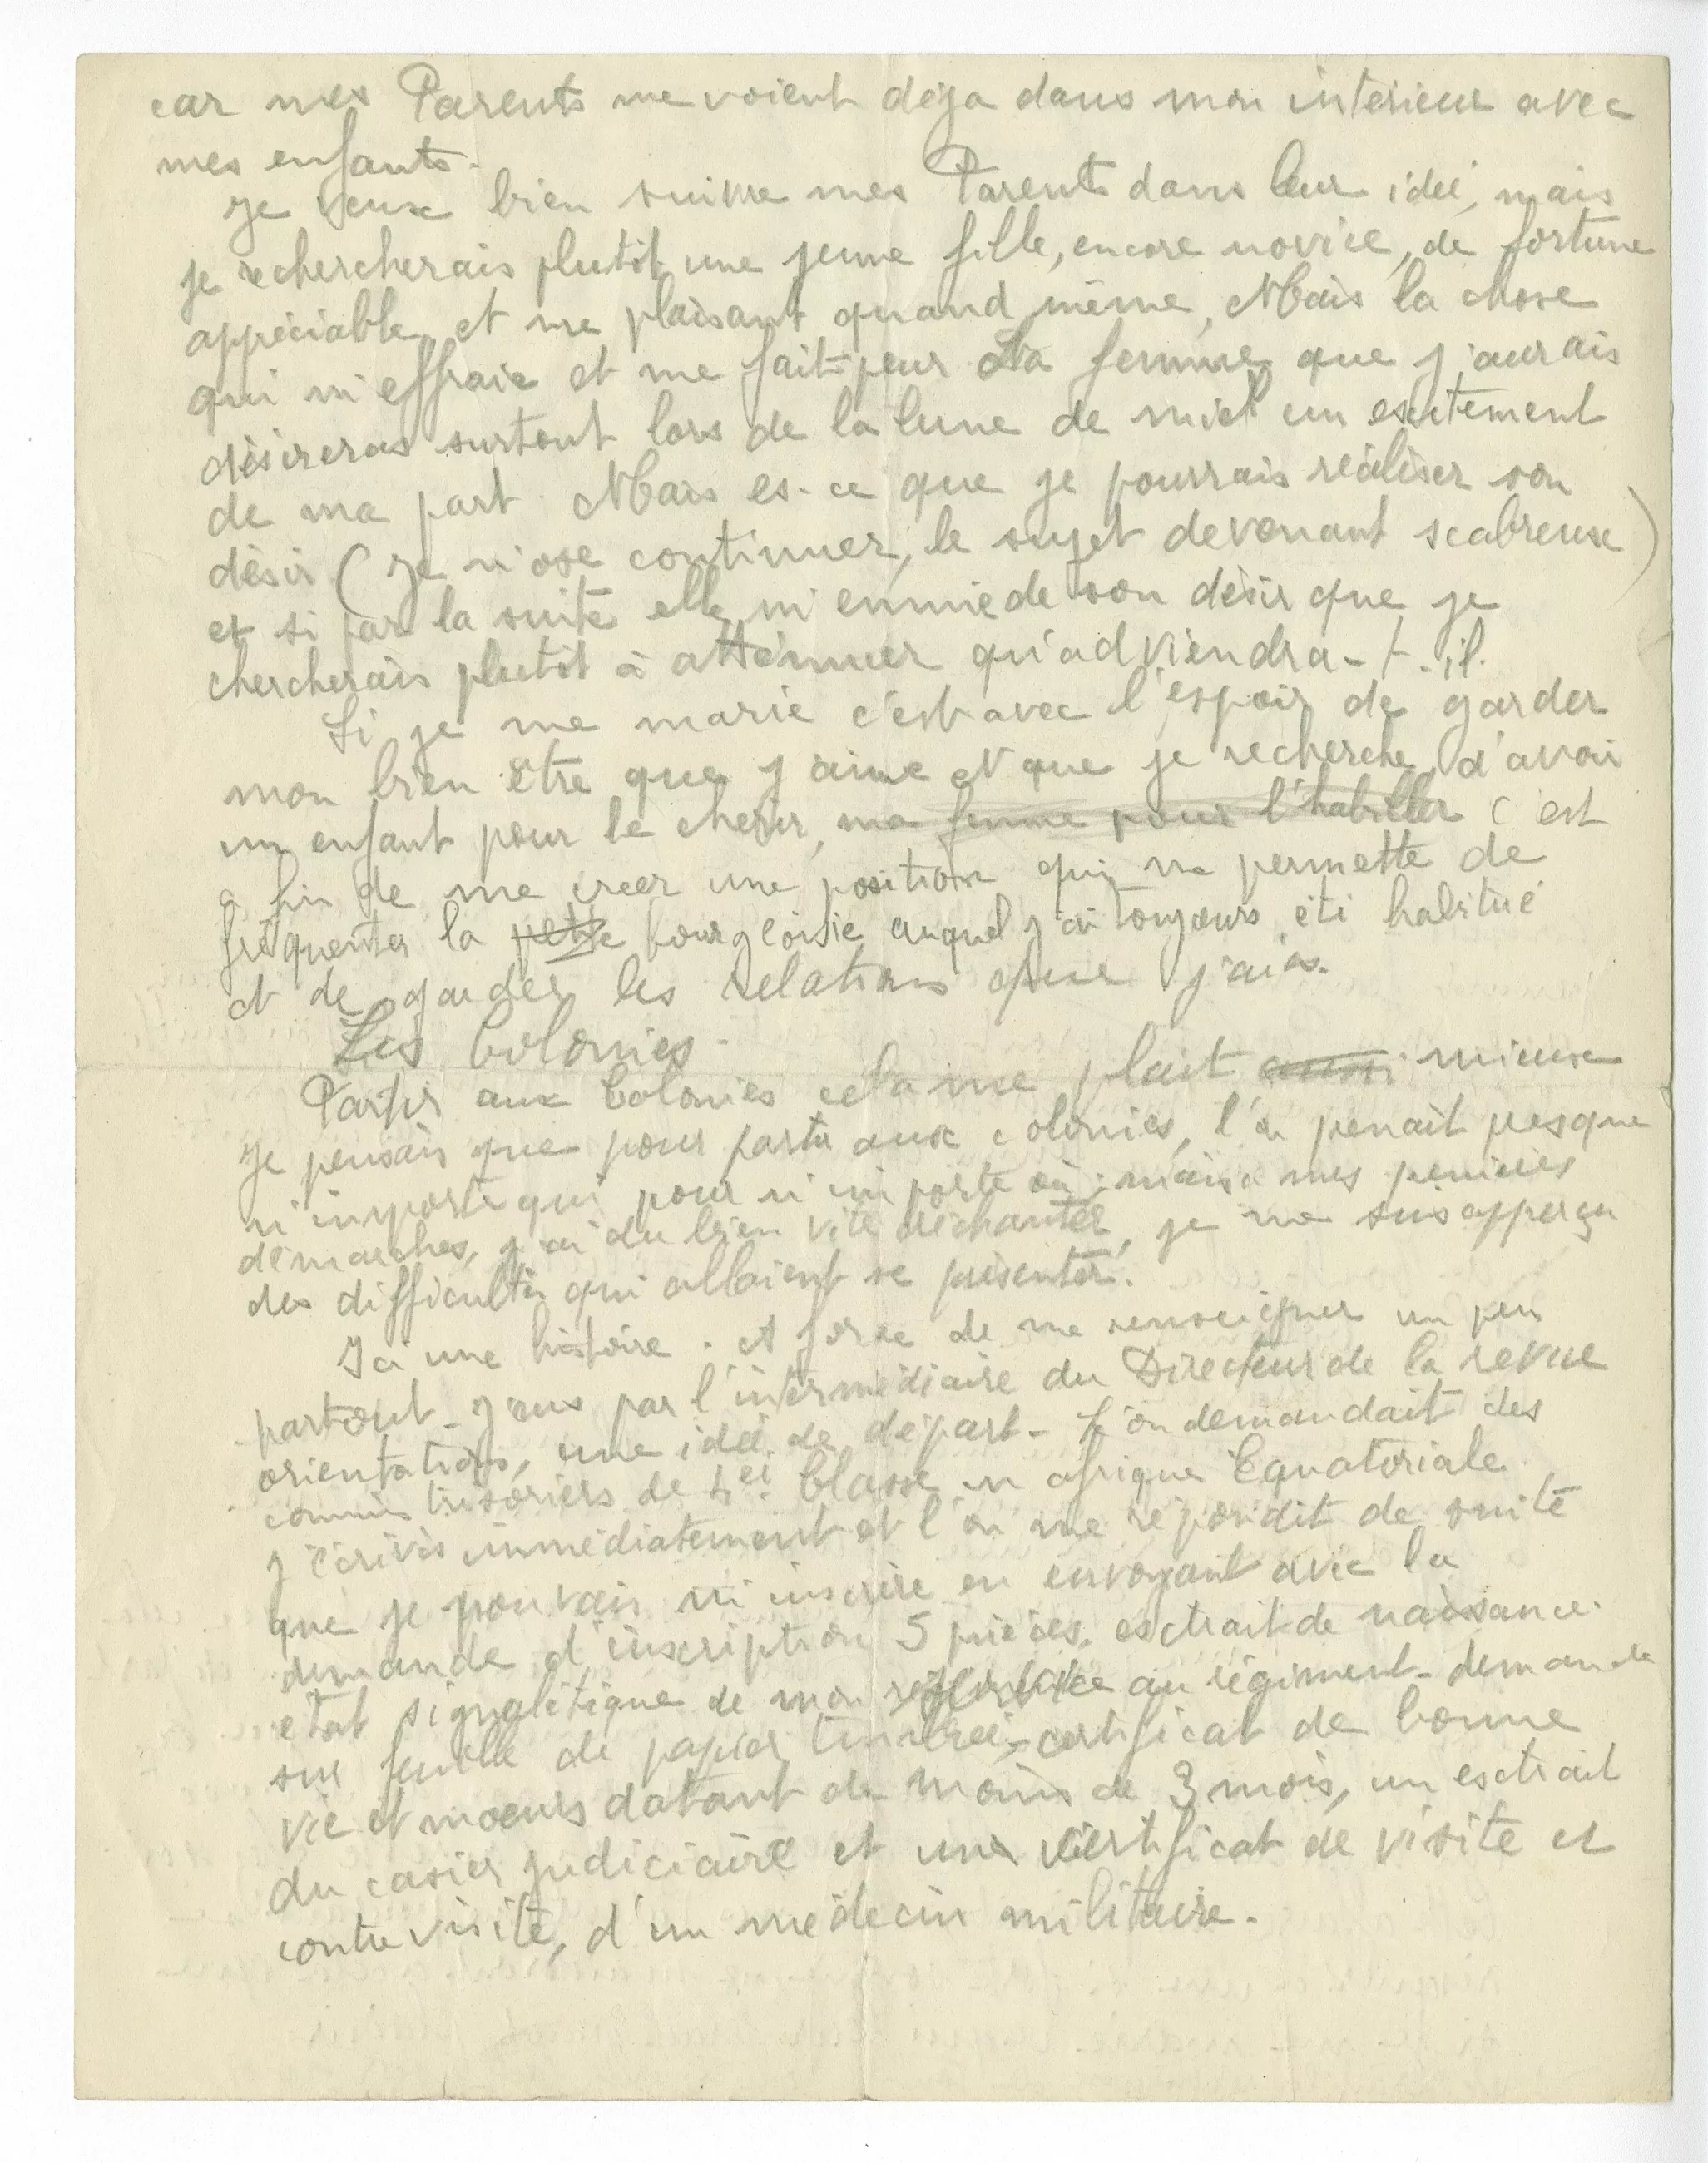 car mes Parents me voient déja dans mon intérieur avec
mes enfants.
Je veux bien suivre mes Parents dans leur idéé, mais
je rechercherais plutôt une jeune fille, encore novice, de fortune
appréciable et me plaisant quand même, Mais la chose
qui m'effraie et me fait peur La femme que j'aurais
désireras surtout lors de la lune de miel un exitement
de ma part. Mais es-ce que je pourrais réaliser son
désir (Je n'ose continuer, le sujet devenant scabreuse)
et si par la suite elle m'ennuie de son désir que je
chercherais plutôt à atténuer qu'adviendra-t-il.
Si je me marie c'est avec l'espoir de garder
mon bien être que j'aime et que je recherche, d'avoir
un enfant pour le cherir, ma femme pour l'habiller c'est
a fin de me creer une position qui me permette de
fréquenter la petite bourgeoisie auquel j'ai toujours été habitué
et de garder les relations que j'ais.
Les Colonies.
Partir aux Colonies cela me plait aussi mieux
Je pensais que pour partir aux colonies, l'on penait presque
n'importe qui pour n'importe où; mais a mes premières
démarches, j'ai du bien vite déchanter, je me suis apperçu
des difficultés qui allaient se présenter.
Ici une histoire. et force de me renseigner un peu
partout. j'eus par l'intermédiaire du Directeur de la revue
orientation, une idéé de départ- L'on demandait des
commis trésoriers de 4ei Classe en afrique Equatoriale.
j'écrivis immédiatement et l'on me répondit de suite
que je pouvais m'inscrire en envoyant avec la
demande d'inscription 5 pièces. extrait de naissance.
etat signalétique de mon service au régiment- demande
sur feuille de papier timbréé, certificat de bonne
vie et moeurs datant de moins de 3 mois, un extrait
du casier judiciaire et une certificat de visite et
contre visite, d'un médecin militaire.